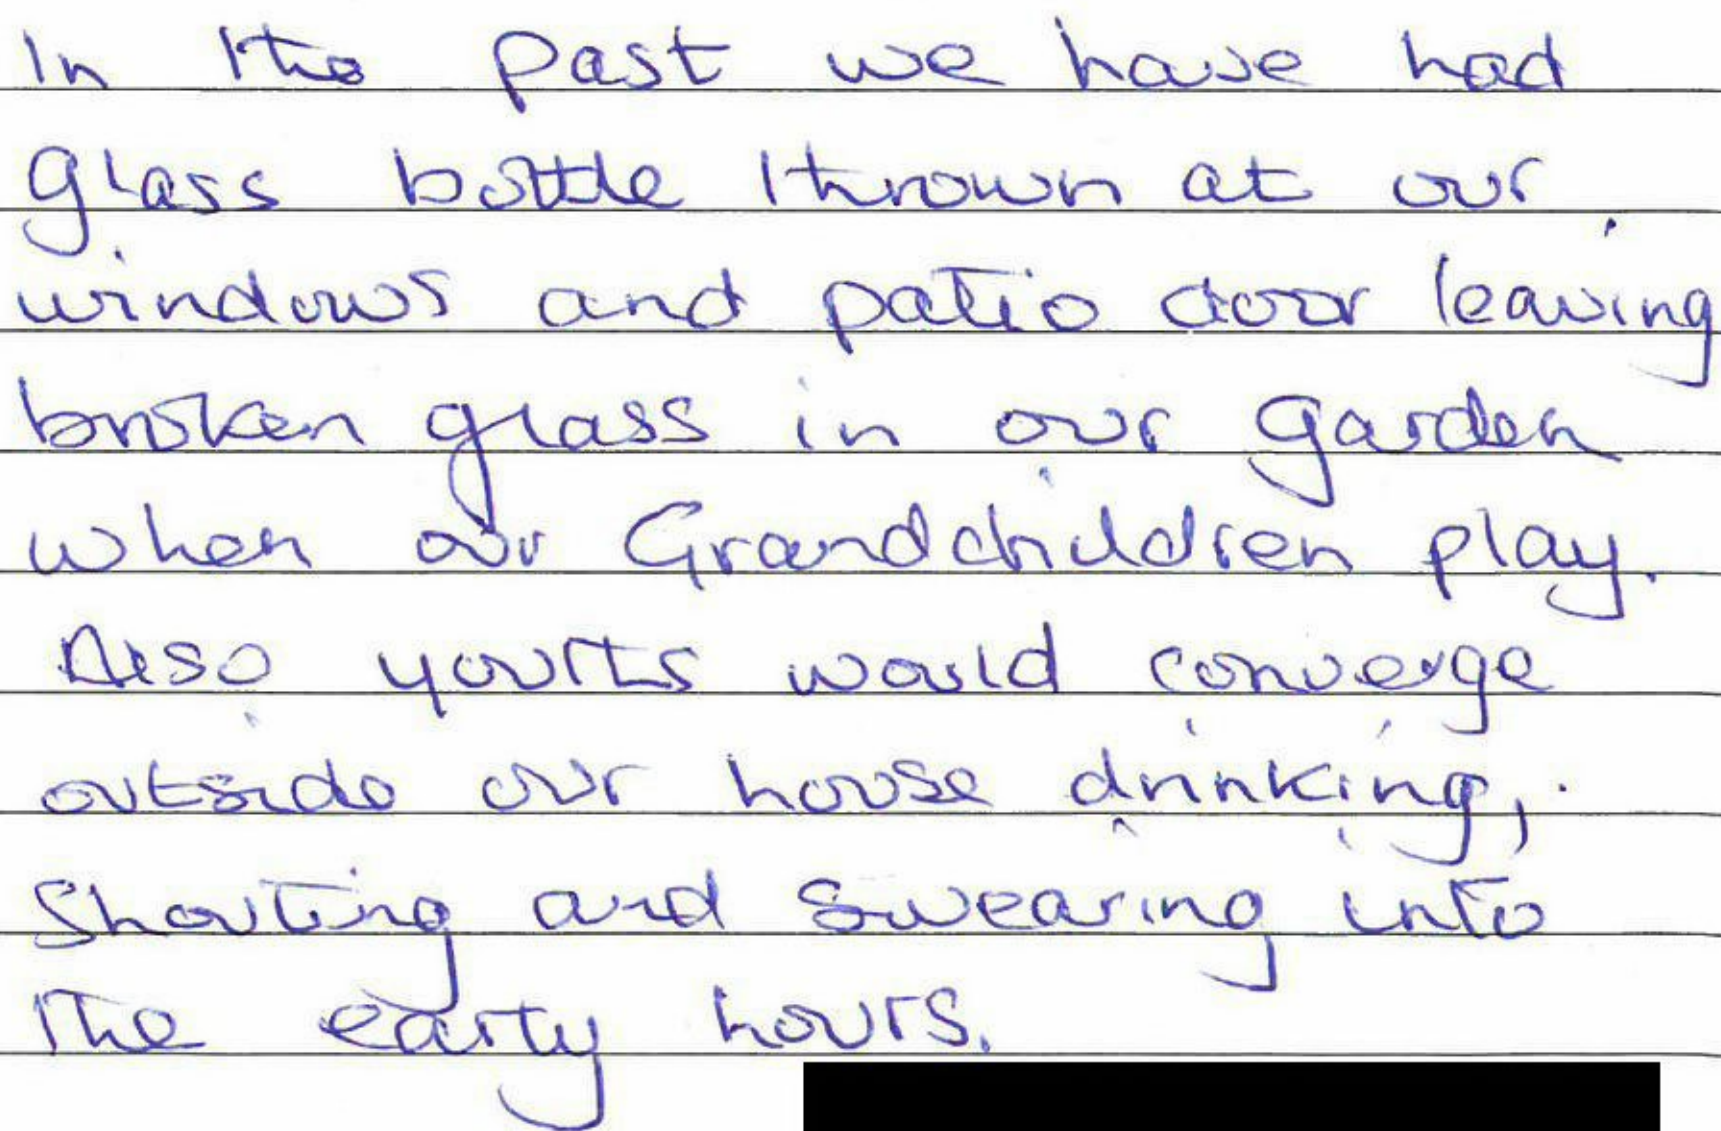 In the past we have had
glass bottle thrown at our
windows and patio door leaving
broken glass in our garden
when our Grandchildren play.
Also yourts would converge
outside our house drinking,
Shouting and Swearing into
the early hours.